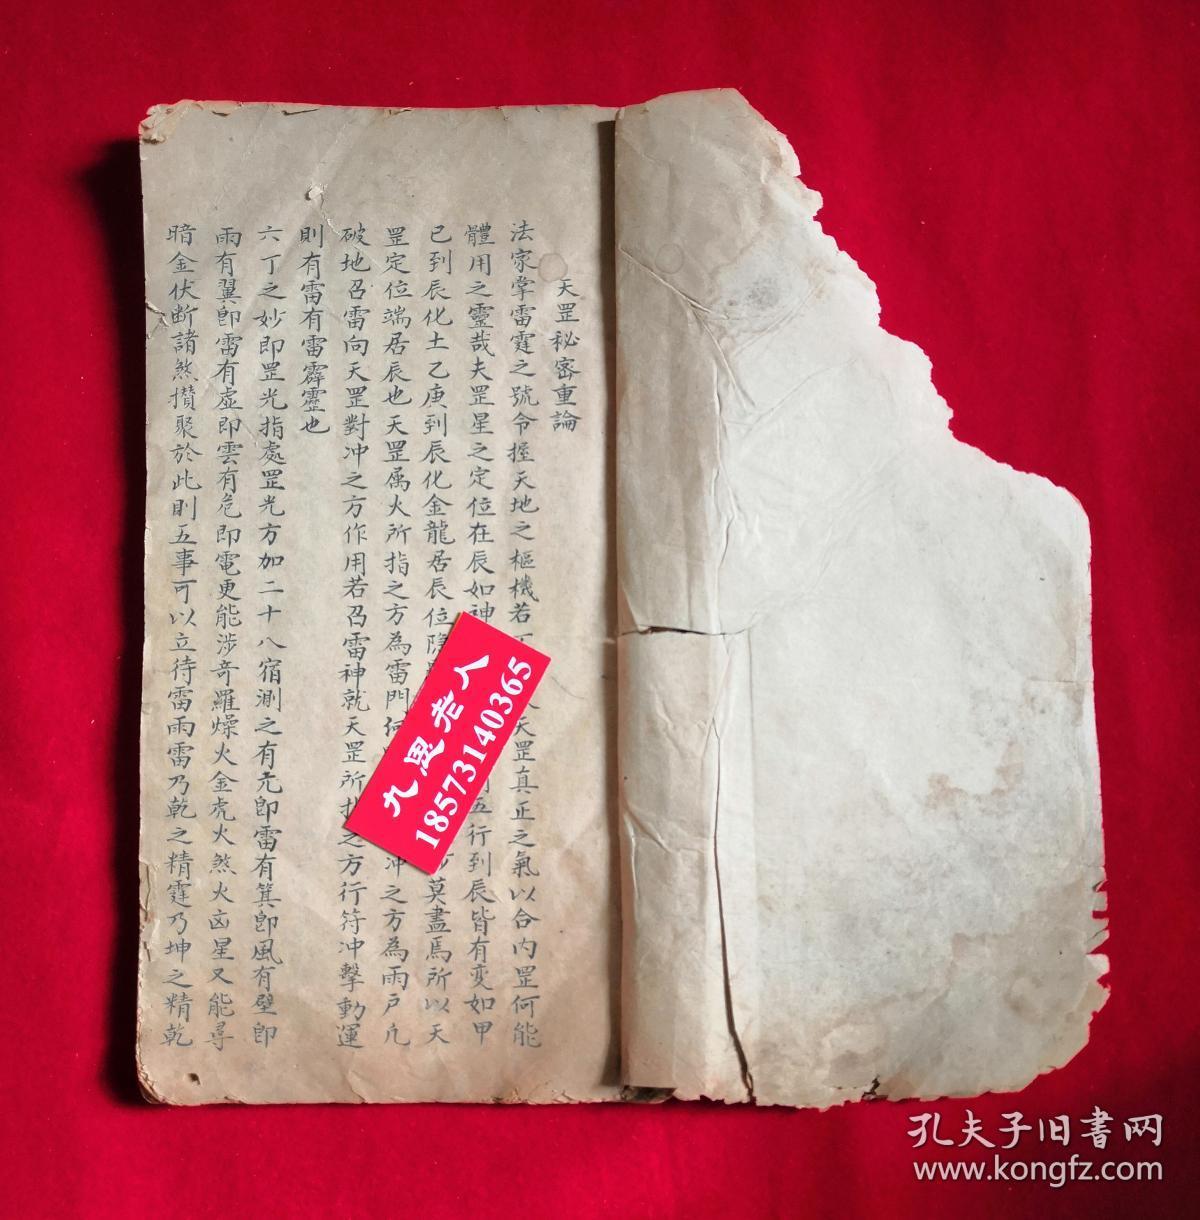 天罡秘密重論
法家掌雷霆之號令握天地之樞機若 天罡真正之氣以合內罡何能
體用之靈哉夫罡星之定位在辰如神 五行到辰皆有变如甲
已到辰化土乙庚到辰化金龍居辰位隐 莫盡焉所以天
罡定位端居辰也天罡属火所指之方為雷門 冲之方為雨户凢
破地召雷向天罡對冲之方作用若召雷神就天罡所 之方行符冲擊動運
則有雷有雷霹靂也
六丁之妙即罡光指處罡光方加二十八宿測之有亢即雷有箕即風有壁即
雨有翼即雷有虛即雲有危即電更能涉奇羅燥火金虎火煞火凶星又能尋
暗金伏断諸煞攅聚於此則五事可以立待雷雨雷乃乾之精霆乃坤之精乾
九愚老人
18573140365
孔夫子旧書网
www.kongfz.com